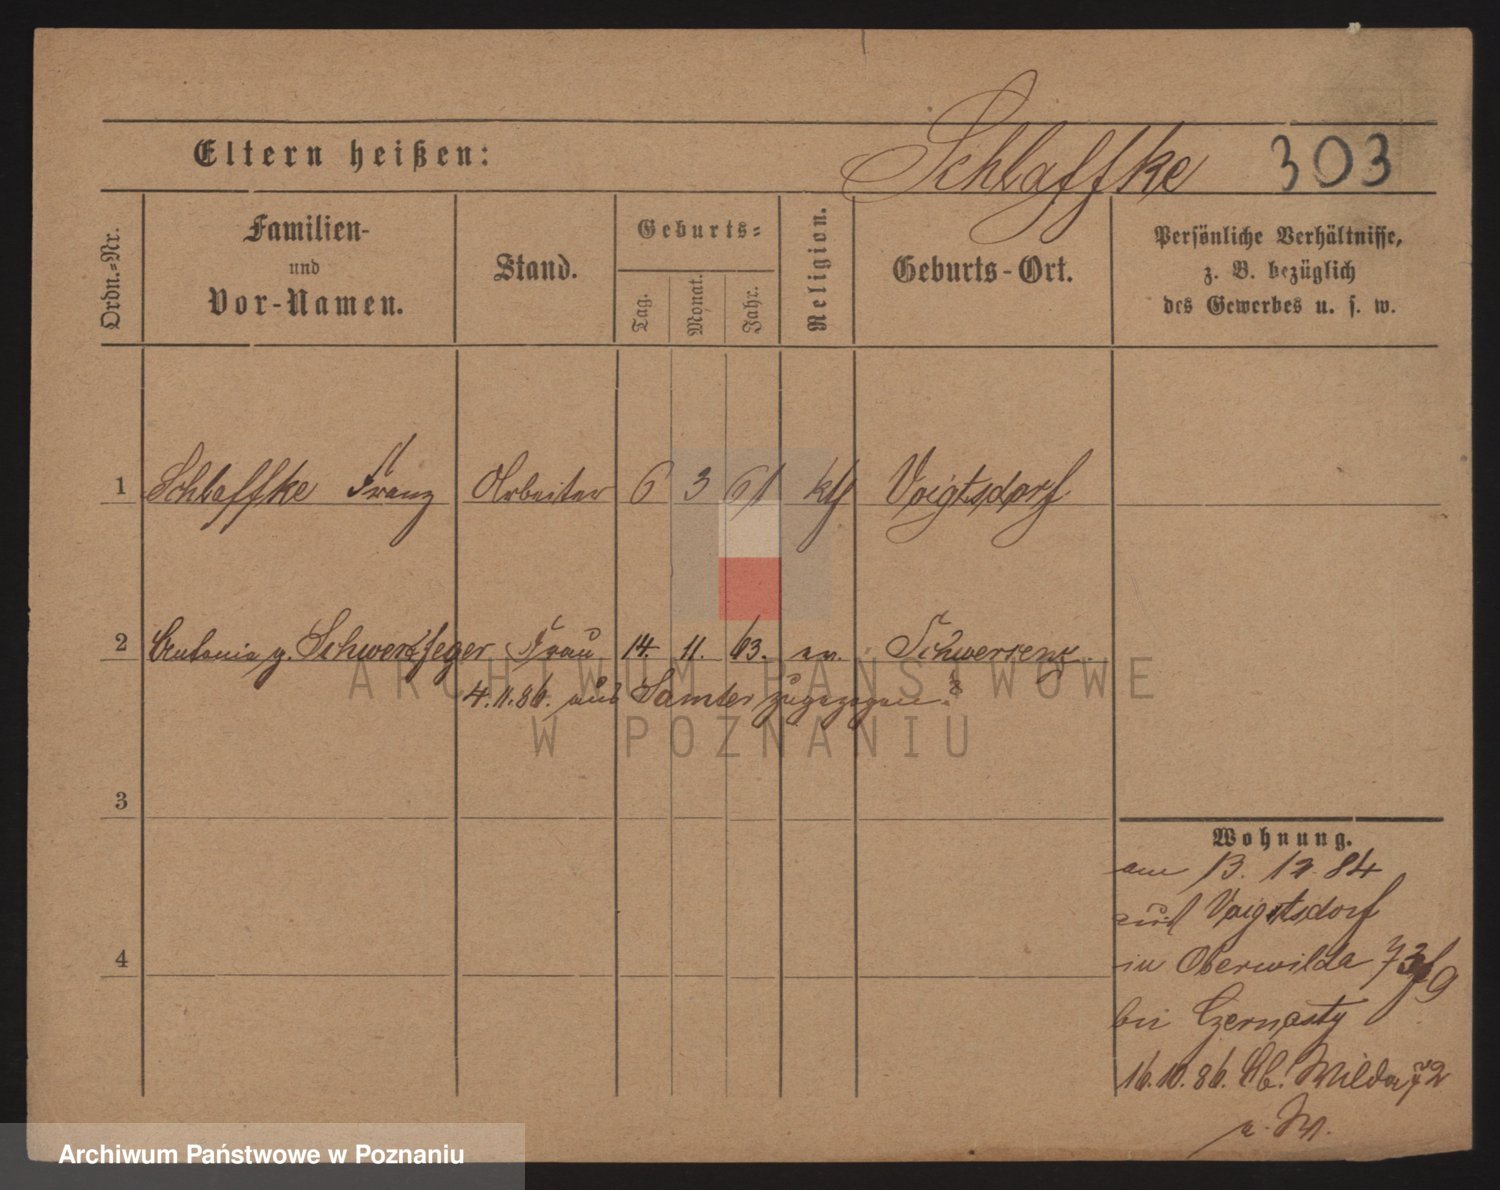 Schlaffke 303
Eltern heißen:
Ordn.=Nr.
Familien-
und
Vor-Namen.
Stand.
Geburts=
Tag.
Monat.
Jahr.
Religion.
Geburts-Ort.
Persönliche Verhältnisse,
z. B. bezüglich
des Gewerbes u. s. w.
1 Schlaffke Franz Arbeiter 6 3 61 kth Voigtsdorf
2 Antonie g. Schwerdfeger Frau 14. 11. 63. ev. Schwersenz
4.11.86. aus Samter zugezogen.
3
4
Wohnung.
am 13. 12. 84
aus Voigtsdorf
in Oberwilda 73
bei Czernasty
16.10.86. Ob. Wilda 72
ARCHIWUM PAŃSTWOWE
W POZNANIU
Archiwum Państwowe w Poznaniu